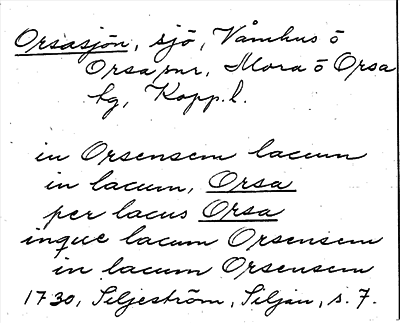 Orsasjön, sjö, Våmhus ö
Orsa snr, Mora ö Orsa
tg, Kopp.l.
in Orsensem lacum
in lacum, Orsa
per lacus Orsa
inque lacum Orsensem
in lacum Orsensem
1730, Siljeström, Siljan, s. 7.